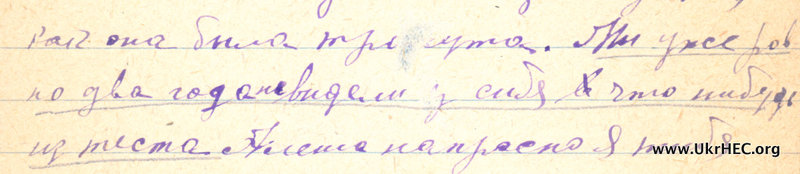 как она была три сута. Мы уже ров
но два года невидели у себя в что нибудь
из теста Алеша напрасно я тебя
www.UkrHEC.org